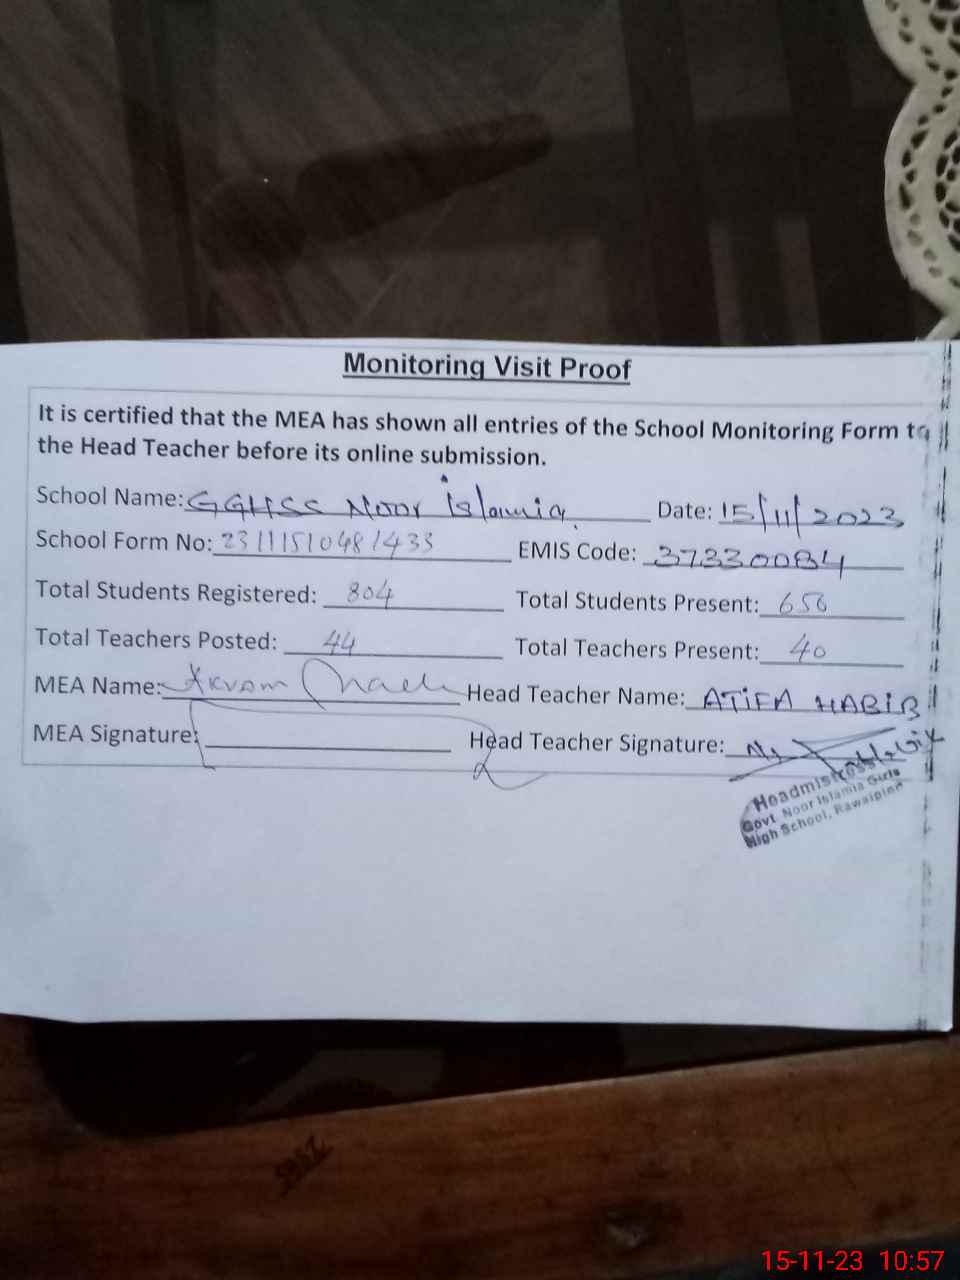 Monitoring Visit Proof
It is certified that the MEA has shown all entries of the School Monitoring Form to
the Head Teacher before its online submission.
School Name: GGHSS Noor islamia. Date: 15/11/2023
School Form No: 23111510481433 EMIS Code: 37330084
Total Students Registered: 804 Total Students Present: 650
Total Teachers Posted: 44 Total Teachers Present: 40
MEA Name: Akram Head Teacher Name: ATIFA HABIB
MEA Signature: Head Teacher Signature:
Headmistress
Govt Noor Islamia Girls
High School, Rawalpindi
15-11-23 10:57